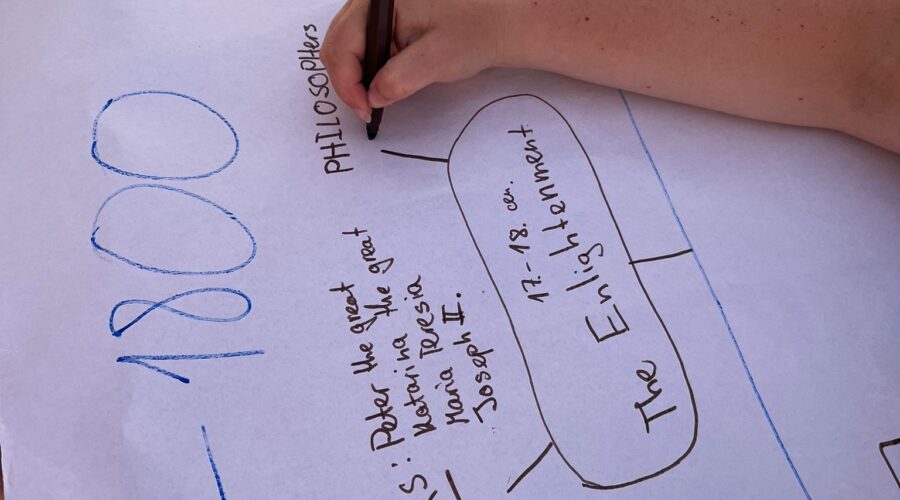 1800
PHILOSOPHers
S: Peter the great
Katarina the great
Maria Teresia
Joseph II.
17.-18. cen.
The Enlightenment